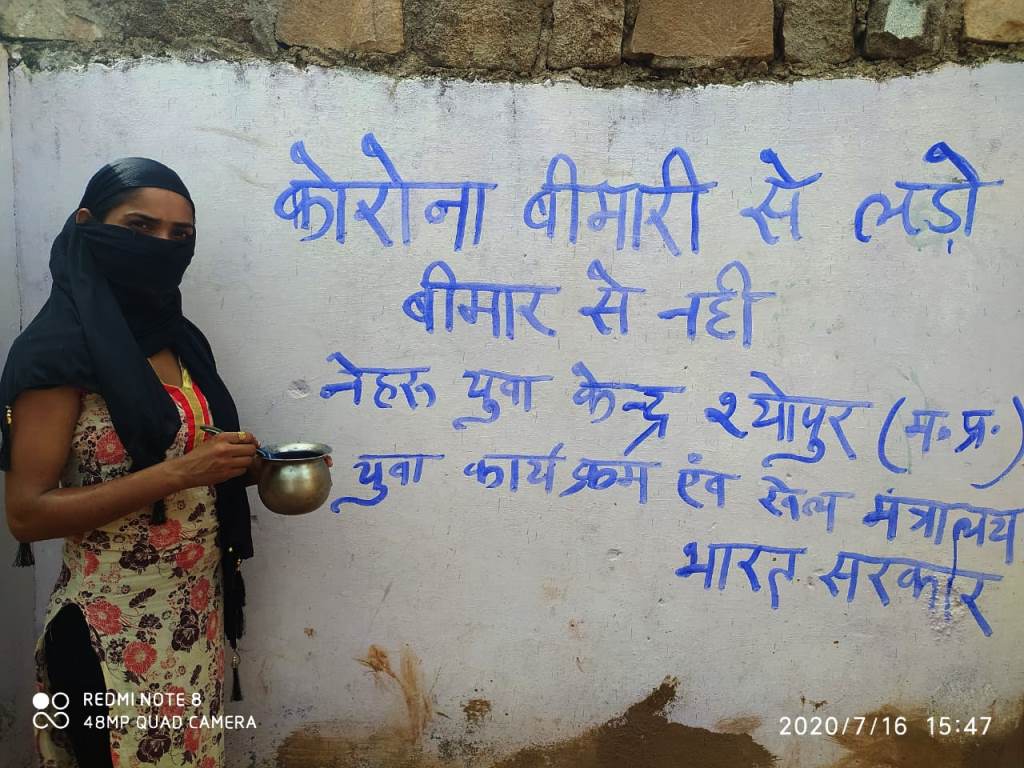 कोरोना बीमारी से लड़ो
बीमार से नही
नेहरू युवा केन्द्र श्योपुर (म.प्र.)
युवा कार्यक्रम एंव खेल मंत्रालय
भारत सरकार
REDMI NOTE 8
48MP QUAD CAMERA
2020/7/16 15:47